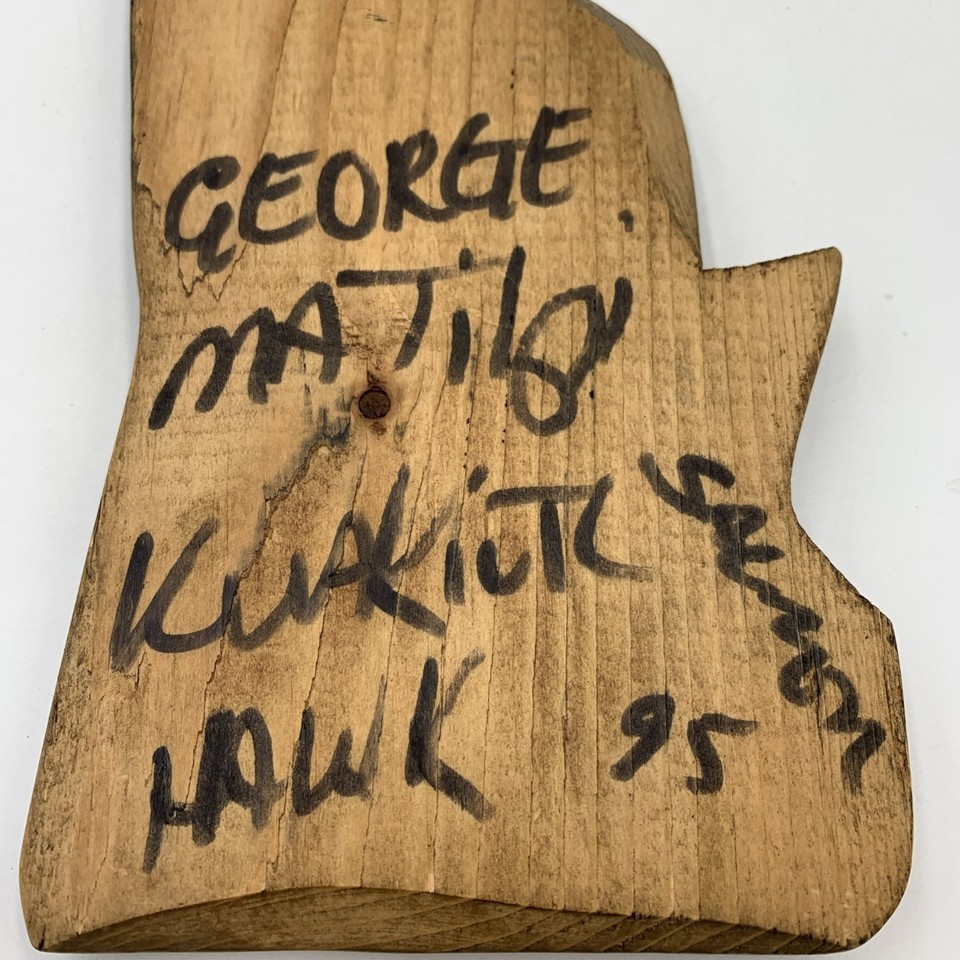 GEORGE
MATILPI
KWAKIUTL
HAWK 95
SALMON